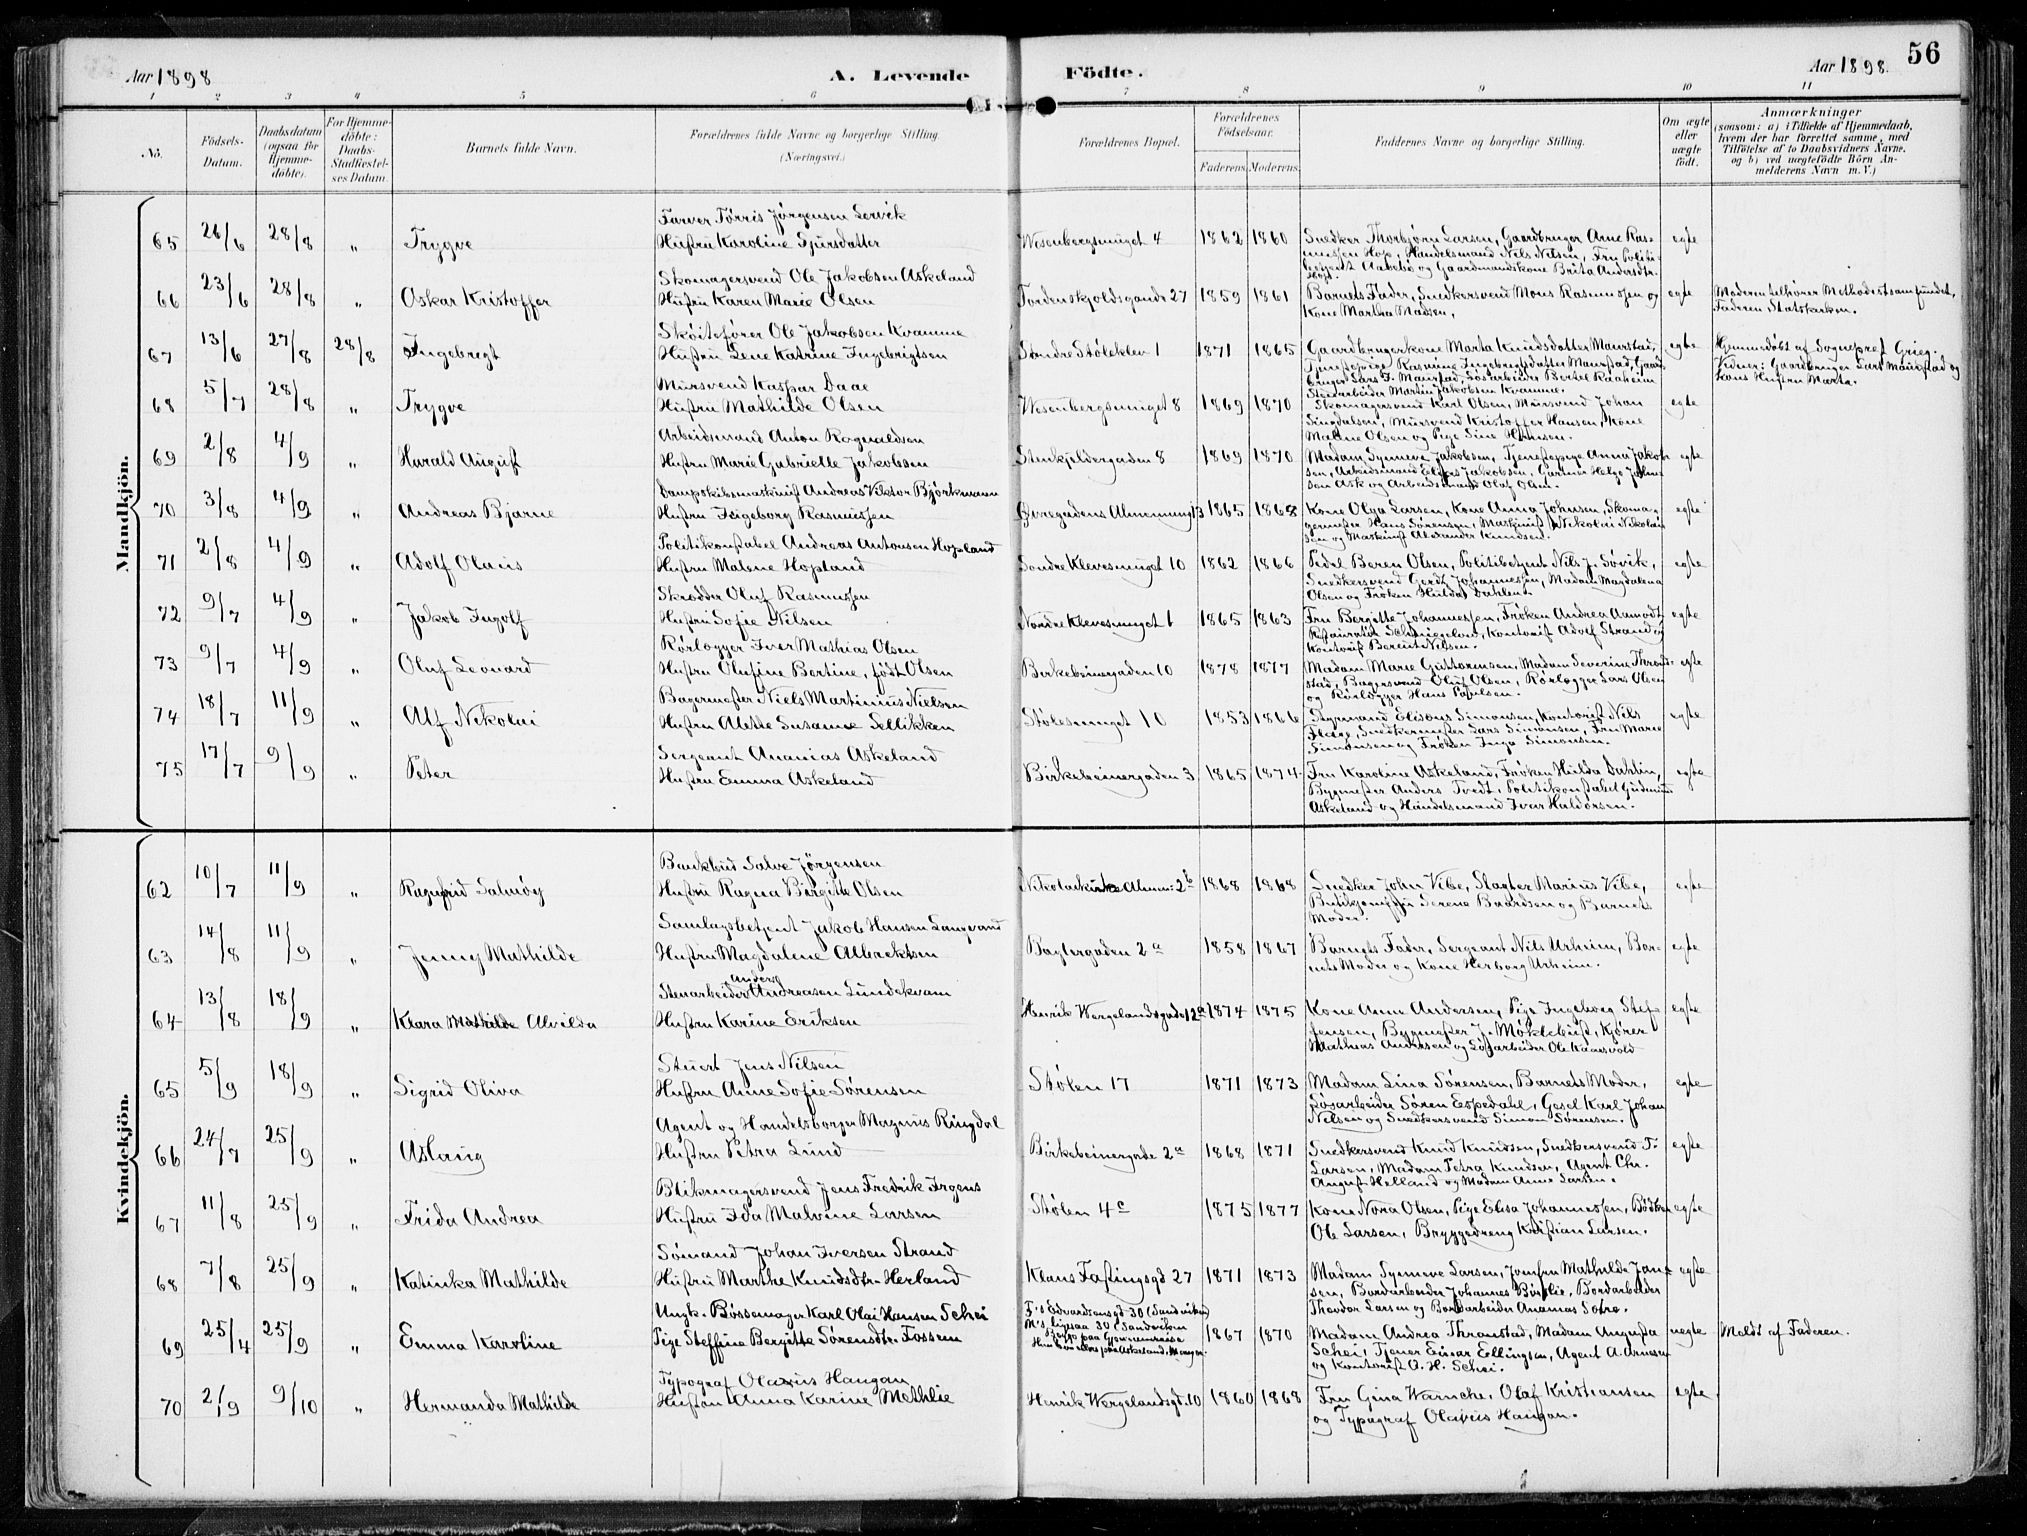 56
Aar 1898
A. Levende
Födte.
Aar 1898.
1 2 3 4 5 6 7 8 9 10 11
No.
Födsels-
Datum.
Daabsdatum
(ogsaa for
Hjemme-
döbte).
For Hjemme-
döbte:
Daabs-
Stadfæstel-
ses Datum.
Barnets fulde Navn.
Forældrenes fulde Navne og borgerlige Stilling.
(Næringsvei.)
Forældrenes Bopæl.
Forældrenes
Födselsaar.
Faderens. Moderens.
Faddernes Navne og borgerlige Stilling.
Om ægte
eller
uægte
födt.
Anmærkninger
(saasom: a) i Tilfælde af Hjemmedaab,
hvem der har forrettet samme, med
Tilföielse af to Daabsvidners Navne,
og b) ved uægtefödte Börn An-
melderens Navn m. V.)
Mandkjön.
65 26/6 28/8 „ Trygve
Farver Tørris Jørgensen Lervik
Hustru Karoline Sjursdatter
Wesenbergsmuget 4 1862 1860
Snedker Thorbjørn Larsen, Gaardbruger Arne Ras-
mussen Hop, Handelsmand Nils Nilsen, Fru Politi-
betjent Aabelsø og Gaardmandskone Brita Andersdtr.
Hop.
egte
66 23/6 28/8 „ Oskar Kristoffer
Skomagersvend Ole Jakobsen Askeland
Hustru Karen Marie Olsen
Tordenskjoldsgade 27 1859 1861
Barnets Fader, Snedkersvend Mons Rasmussen og
Kone Martha Madsen,
egte
Moderen tilhører Methodistsamfundet,
Faderen Statskirken.
67 13/6 27/8 28/8 Ingebrigt
Skøitefører Ole Jakobsen Kvamme
Hustru Lene Katrine Ingebrigtsen
Søndre Stølekleu 1 1871 1865
Gaardbrugerkone Marta Knudsdatter Maurstad,
Tjenestepige Rasmine Ingebrigtsdatter Maurstad, Gaard-
bruger Lars J. Maurstad, Løsarbeider Bertel Raaheim
Stenarbeider Martin Jakobsen Kvamme.
egte
Hjemmedøbt af Sognepræst Grieg.
Vidner: Gaardbruger Lars Maurstad og
Hans Hustru Marta.
68 5/7 28/8 „ Trygve
Mursvend Kaspar Daae
Hustru Mathilde Olsen
Wesenbergsmuget 8 1869 1870
Skomagersvend Karl Olsen, Mursvend Johan
Singdalsen, Mursvend Kristoffer Hansen, Kone
Malene Olsen og Pige Sine Hansen.
egte
69 2/8 4/9 „ Harald August
Arbeidsmand Anton Ragnvaldsen
Hustru Marie Gabrielle Jakobsen
Stenkjeldergaden 8 1869 1870
Madam Synneve Jakobsen, Tjenestepige Anna Jakob-
sen, Arbeidsmand Elias Jakobsen, Gartner Helge Johne-
son Ask og Arbeidsmand Olaf Olsen.
egte
70 3/8 4/9 „ Andreas Bjarne
Dampskibsmaskinist Andreas Viktor Bjørkmann
Hustru Ingeborg Rasmussen
Øvregadens Almenning 13 1865 1868
Kone Olga Larsen, Kone Anna Johnsen, Skoma-
germester Hans Sørensen, Maskinist Nikolai Nikolai-
sen og Maskinist Alexander Knudsen.
egte
71 2/8 4/9 „ Adolf Olaus
Politikonstabel Andreas Antonsen Hopland
Hustru Malene Hopland
Søndre Klevesmuget 10 1862 1866
Pedel Beren Olsen, Politibetjent Nils J. Søvik,
Snedkersvend Gerdt Johannessen, Madam Magdalena
Olsen og Frøken Hulda Dahlen.
egte
72 9/7 4/9 „ Jakob Ingolf
Skrædder Oluf Rasmussen
Hustru Sofie Nilsen
Nordre Klevesmuget 1 1865 1863
Fru Bergitte Johannessen, Frøken Andrea Aamodt,
Kontorist Adolf Strand og
Kontorist Berent Nilsen.
egte
73 9/7 4/9 „ Oluf Leonard
Rørlægger Iver Mathias Olsen
Hustru Olufine Bertine, født Olsen
Birkebeinergaden 10 1878 1877
Madam Marie Guttormsen, Madam Severine Thron-
stad, Bagersvend Oluf Olsen, Rørlægger Lars Olsen
og Rørlægger Hans Paulsen.
egte
74 18/7 11/9 „ Alf Nikolai
Bagermester Niels Martinus Nielsen
Hustru Alette Susanne Sellikken
Stølesmuget 10 1853 1866
Styrmand Elisons Simonsen, Kontorist Nils
Snedkermester Lars Simonsen, Fru Marie
Simonsen og Frøken Inga Simonsen.
egte
75 17/7 9/9 „ Peter
Sergeant Ananias Askeland
Hustru Emma Askeland
Birkebeinergaden 3 1865 1874
Fru Karoline Askeland, Frøken Hulda Dahlin,
Bygmester Anders Tvedt, Politikonstabel Gudmund
Askeland og Handelsmand Ivar Haldorsen.
egte
Kvindekjön.
62 10/7 11/9 „ Ragnfrid Salmøy
Bankbud Salve Jørgensen
Hustru Ragna Birgitte Olsen
Nikolaikirke Almen: 2b 1868 1868
Snedker John Vibe, Slagter Marius Vibe,
Butikjomfru Serene Baardsen og Barnets
Moder.
egte
63 14/8 11/9 „ Jenny Mathilde
Samlagsbetjent Jakob Hansen Langeland
Hustru Magdalene Albrektsen
Baglergaden 2a 1858 1867
Barnets Fader, Sergeant Nils Urheim, Bar-
nets Moder og Kone Herborg Urheim.
egte
64 13/8 18/9 „ Klara Mathilde Alvilda
Anders
Stenarbeider Andreasen Lundekvam
Hustru Karine Eriksen
Henrik Wergelandsgade 12a 1874 1875
Kone Anne Andersen, Pige Ingeborg Stef-
fensen, Bygmester J. Møklebust, Kjører
Mathias Andersen og Løsarbeider Ole Kaarsvold
egte
65 5/9 18/9 „ Sigrid Oliva
Stuert Jens Nilsen
Hustru Anne Sofie Sørensen
Stølen 17 1871 1873
Madam Lina Sørensen, Barnets Moder,
Løsarbeider Søren Espedahl, Gesel Karl Johan
Nilsen og Snedkersvend Simon Sørensen.
egte
66 24/7 25/9 „ Aslaug
Agent og Handelsborger Magnus Ringdal
Hustru Petra Lund
Birkebeinergade 2a 1868 1871
Snedkersvend Knud Knudsen, Snedkersvend T.
Larsen, Madam Petra Knudsen, Agent Chr.
August Helland og Madam Anne Larsen.
egte
67 11/8 25/9 „ Frida Andrea
Blikmagersvend Jens Fredrik Irgens
Hustru Ida Malvine Larsen
Stølen 4c 1875 1877
Kone Nora Olsen, Pige Elisa Johannessen, Bødker
Ole Larsen, Bryggedreng Kristian Larsen.
egte
68 7/8 25/9 „ Katinka Mathilde
Sømand Johan Iversen Strand
Hustru Marthe Knudsdtr. Herland
Klaus Fastingsgd 27 1871 1873
Madam Synneve Larsen, Jomfru Mathilde Jan-
sen, Bordarbeider Johannes Børslie, Bordarbeider
Theodor Larsen og Bordarbeider Ananias Sotra.
egte
69 25/4 25/9 „ Emma Karoline
Ungk. Bøssemager Karl Olai Hansen Schei
Pige Steffine Bergitte Sørensdtr. Fossem
F's Edvardsensgd. 30 (Sandviken)
M's ligesaa 30 (Sandviken
Begge paa Gjennemreise
1867 1870
Madam Andrea Thronstad, Madam Augusta
Schei, Tjener Einar Ellingsen, Agent A. Arnesen
og Kontorist O. H. Schei.
uegte
Meldt af Faderen.
70 2/9 9/10 „ Hermanda Mathilde
Typograf Olavus Haugan
Hustru Anna Karine Methlie
Henrik Wergelandsgd. 10 1860 1868
Fru Gina Warncke, Olaf Kristiansen
og Typograf Olavus Haugan.
egte